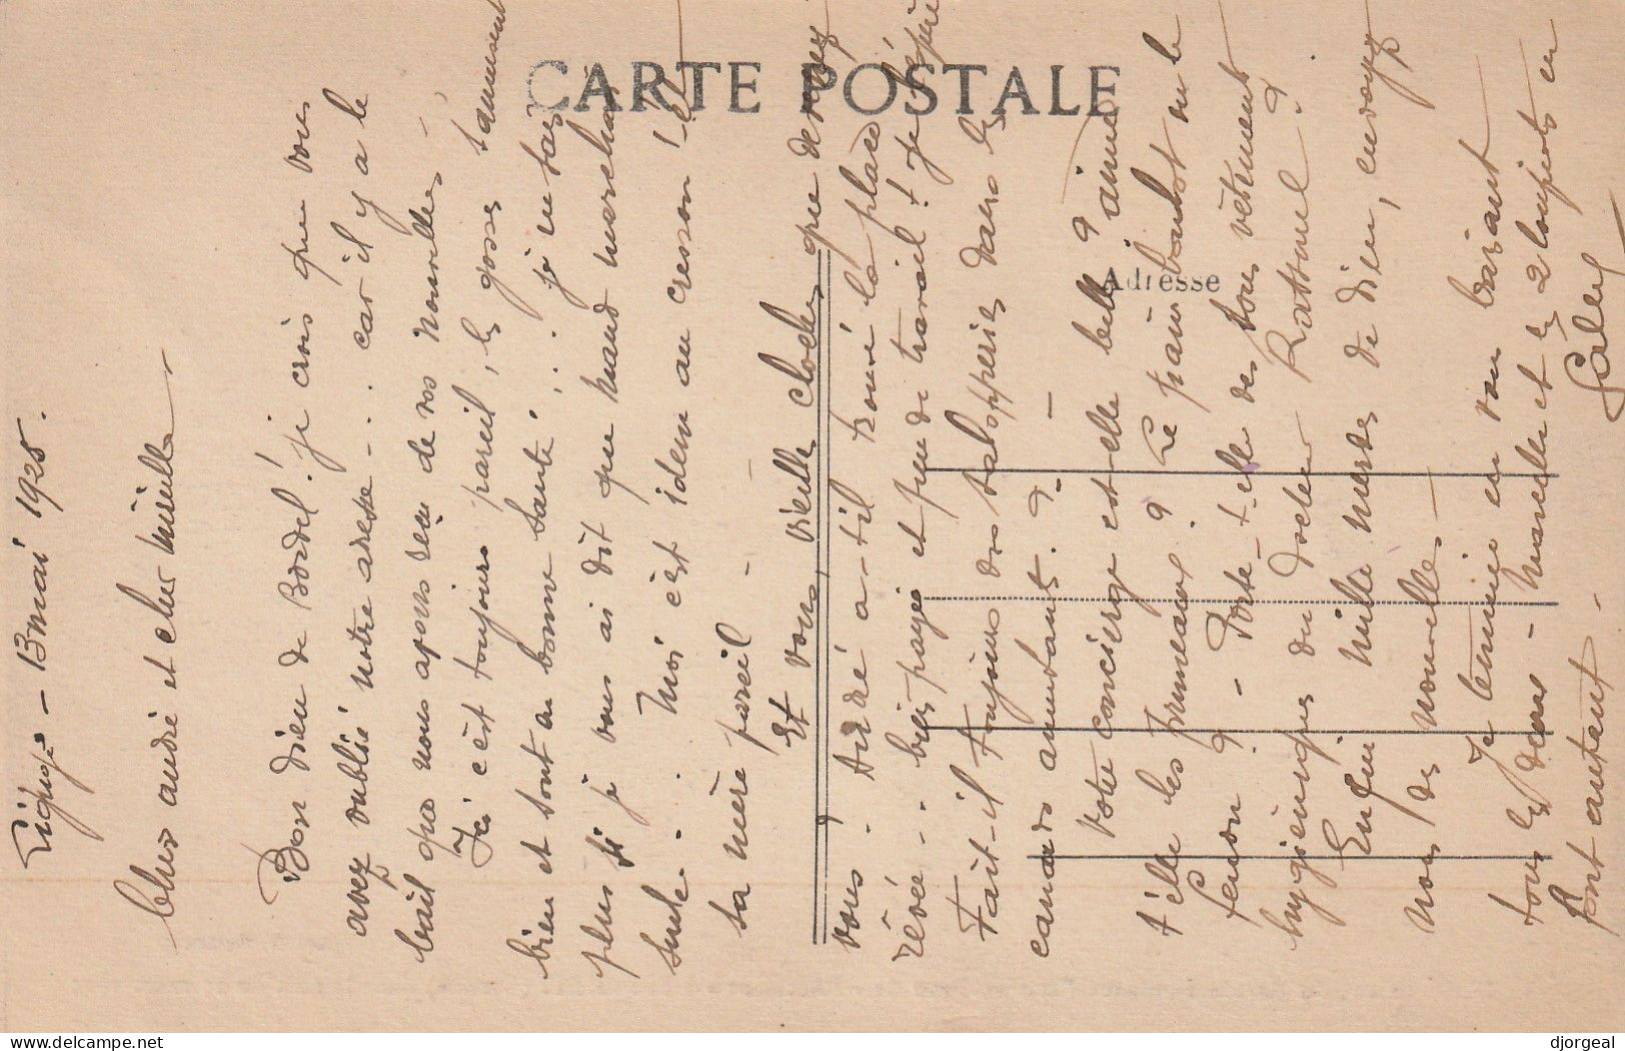 CARTE POSTALE
Adresse
13 mai 1925.
Cher andré et cher
Bon Dieu de Bordel ! je crois que vous
avez oublié notre adresse - . car il y a le
bail que nous avons reçu de vos nouvelles -
Ici c'est toujours pareil, les gosses s'amusent
bien et sont en bonne santé, . . je ne sais
plus si je vous ai dit que marchait
seule - . Moi c'est idem au cresson et
sa mère pareil -
Et vous, vieille cloche, que devenez
vous . André a-t-il trouvé la place
rêvée - . bien payée et peu de travail ! Je l'espère
Fait-il toujours des dans les
canards ambulants . ? -
Votre concierge est-elle belle ? aime
t'elle les pruneaux ? Le
- Porte-t-elle des sous vêtements
hygiéniques du docteur Rassurel ?
Enfin mille merdes de Dieu, envoyez
nous des nouvelles -
Je termine en vous baisant
tous les deux - et les 2 loupiots en
font autant -
djorgeal